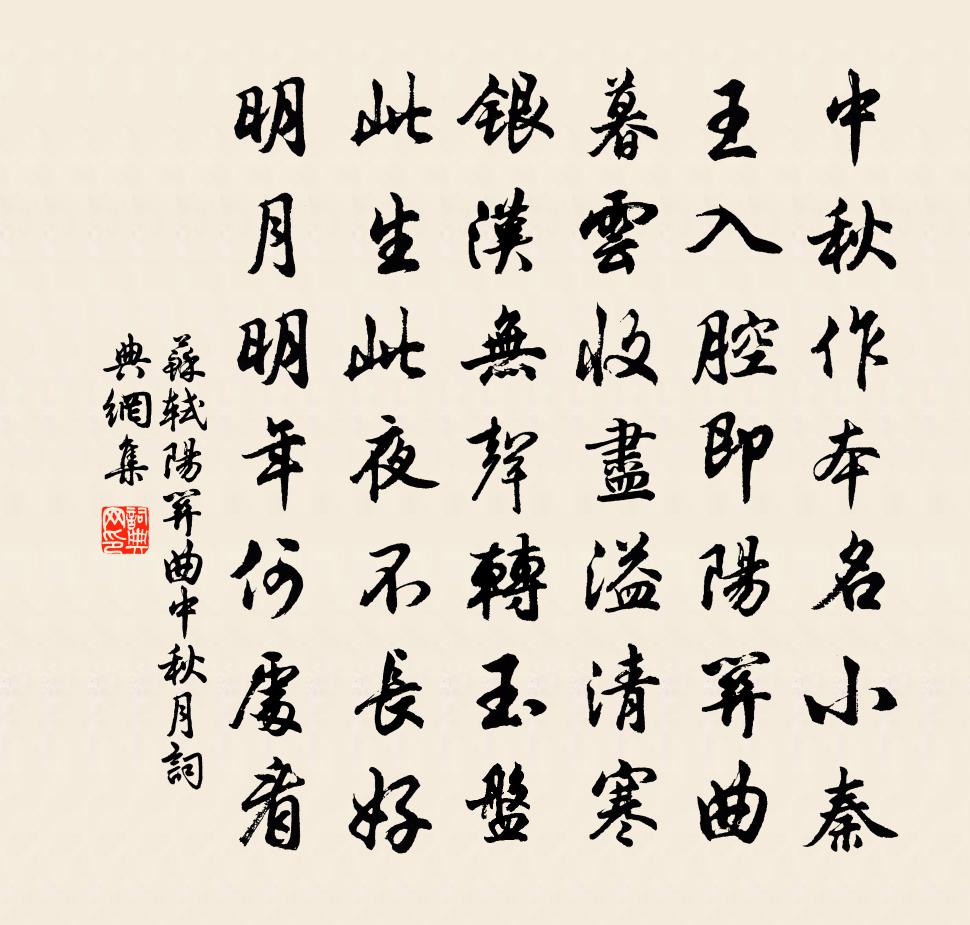 中秋作本名小秦
王入腔即陽關曲
暮雲收盡溢清寒
銀漢無聲轉玉盤
此生此夜不長好
明月明年何處看
蘇軾陽關曲中秋月詞
典網集
詞典网印